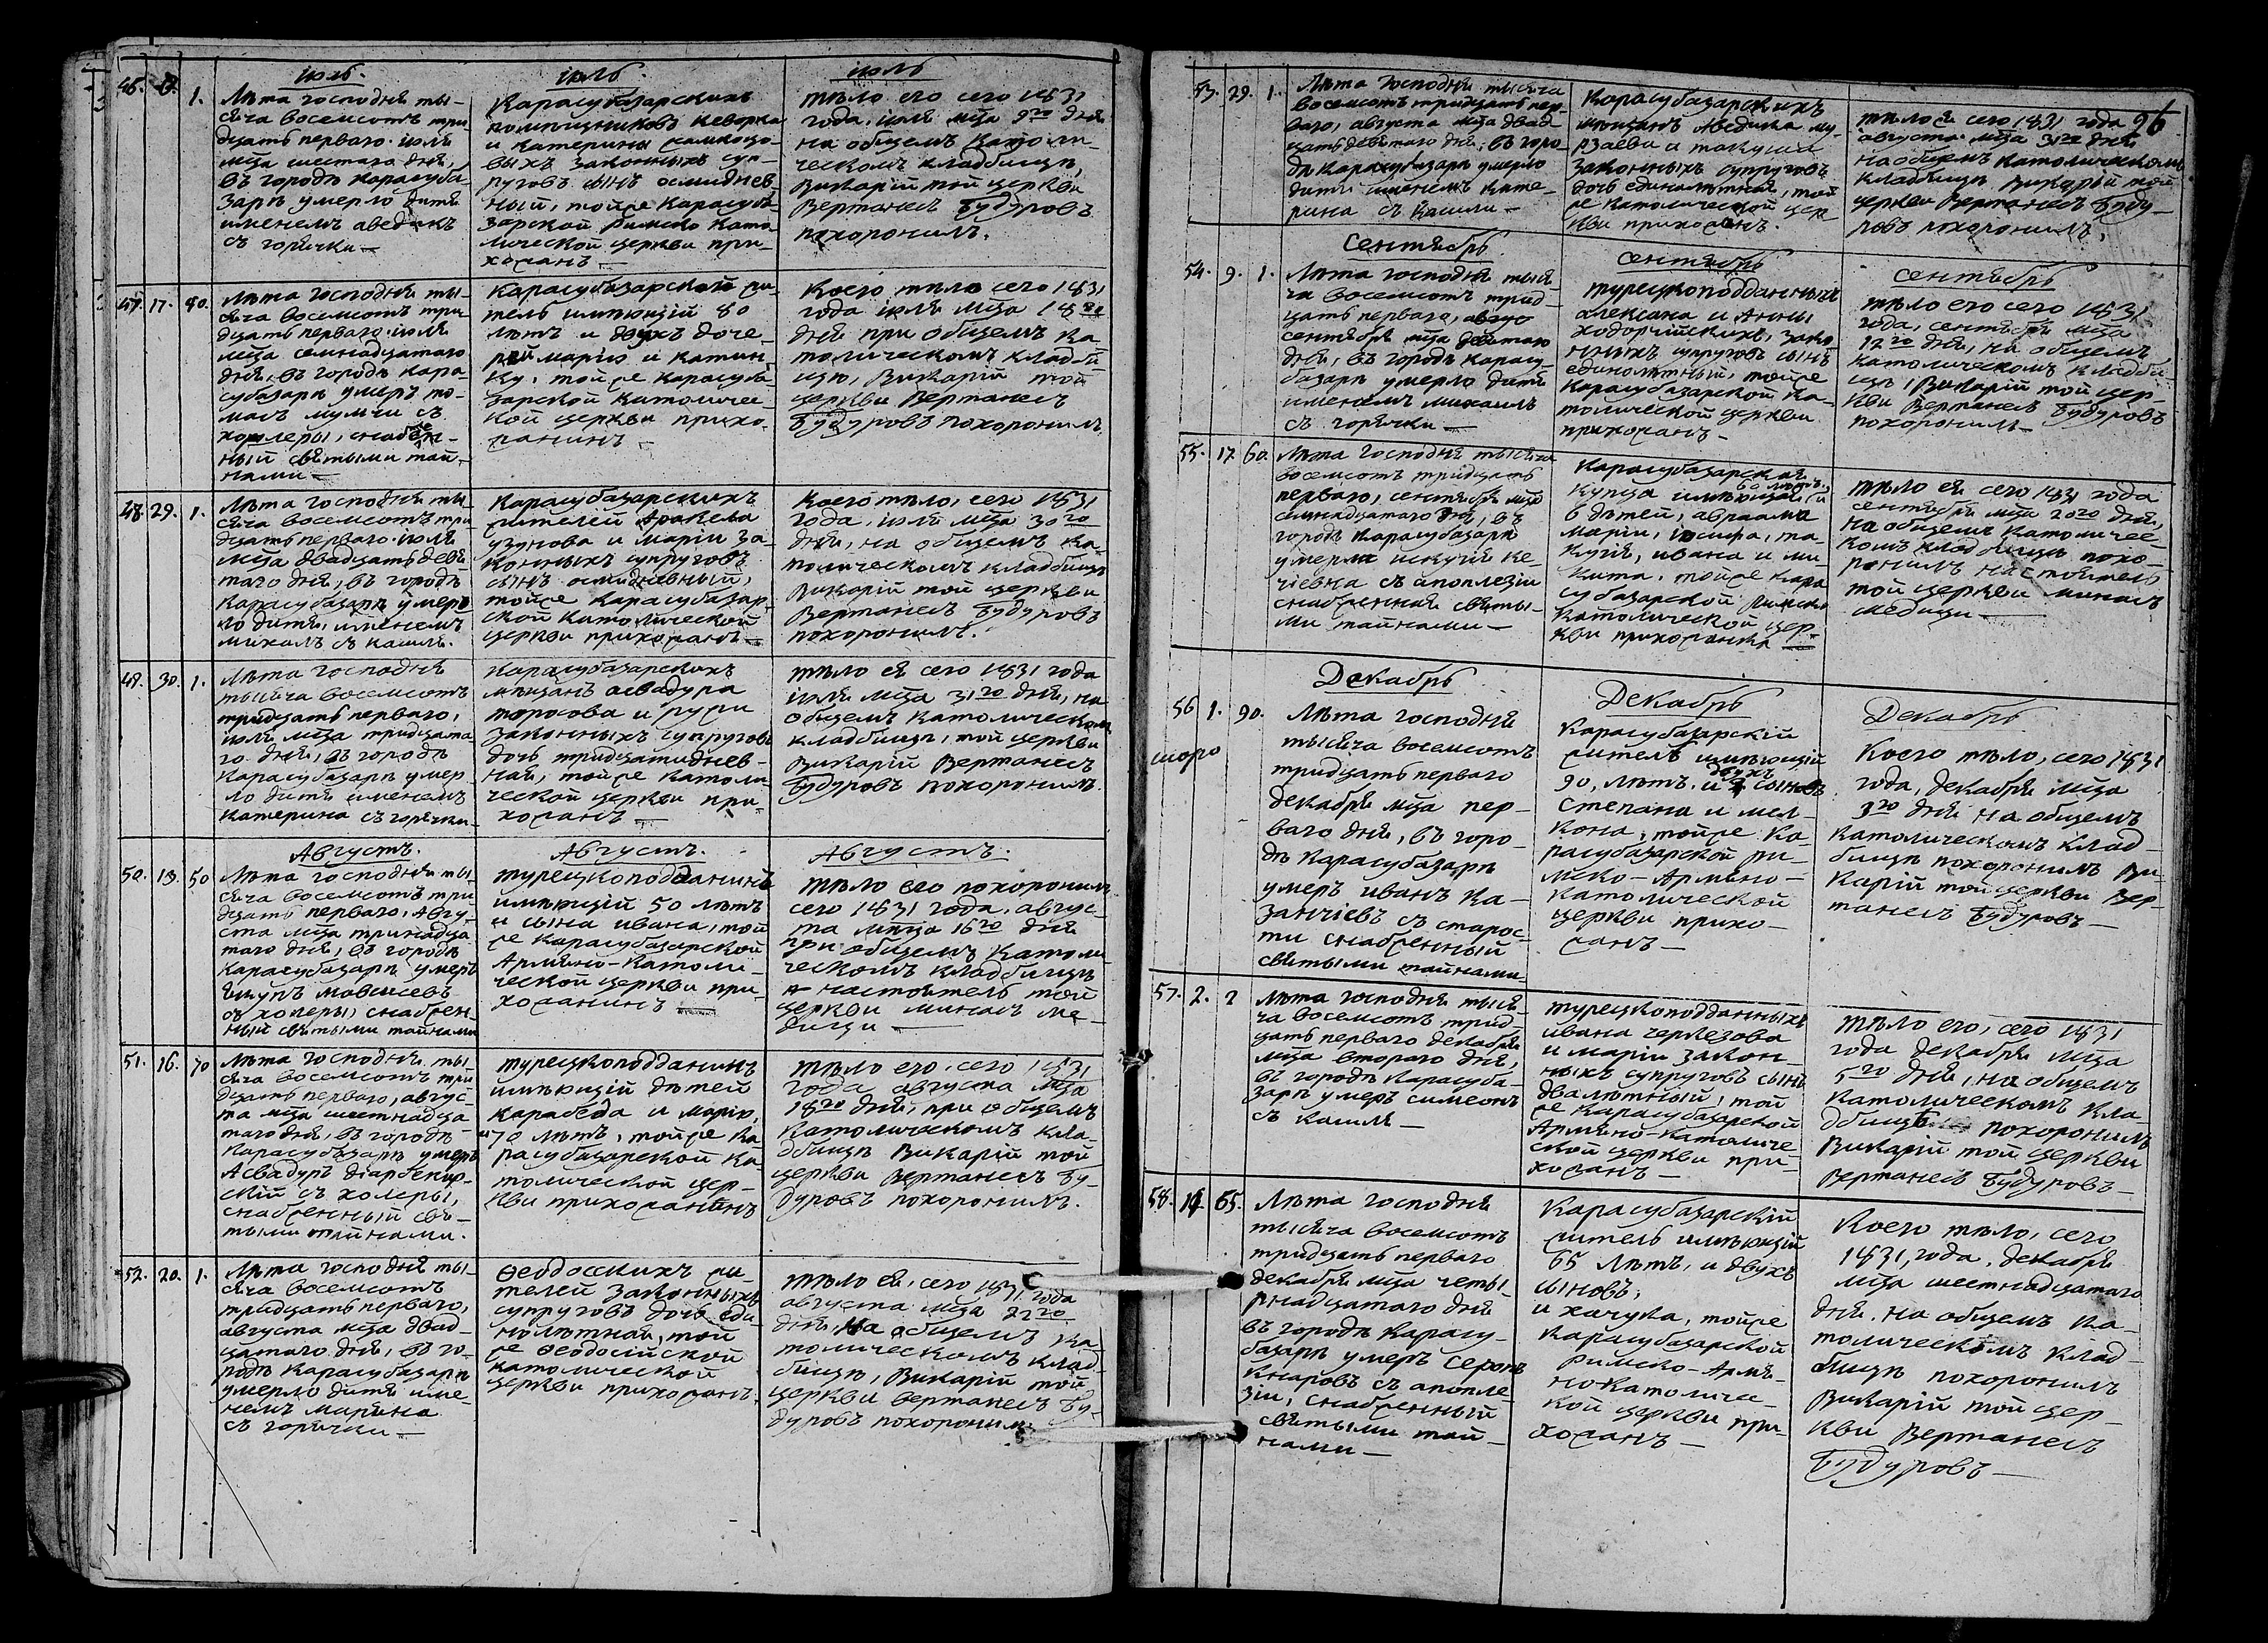 46. 8. 1.
іюль.
Лѣта господня ты-
сяча восемсотъ три-
дцать перваго. іюля
мѣца шестаго дня,
въ городѣ карасуба-
зарѣ умерло дитя
именемъ аведикъ
съ горячки —
іюль.
Карасубазарскихъ
помѣщиковъ Кеворка
и катерины
выхъ законныхъ суп-
руговъ сынъ осмиднев-
ный, тойже Карасуба-
зарской Римско Като-
лической церкви при-
хожанъ —
іюль
тѣло его сего 1831
года, іюля мѣца 9го дня
на общемъ Католи-
ческомъ кладбищѣ,
Викарій той церкви
Вертанесъ Будуровъ
похоронилъ.
47. 17. 80.
Лѣта господня ты-
сяча восемсотъ три-
дцать перваго. іюля
мѣца семнадцатаго
дня, въ городѣ кара-
субазарѣ умеръ то-
масъ мумчи съ
холеры, снабжен-
ный святыми тай-
нами —
Карасубазарский жи-
тель имѣющій 80
лѣтъ и двухъ доче-
рей марію и катин-
ку, тойже карасуба-
зарской католичес-
кой церкви прихо-
жанинъ —
Коего тѣло сего 1831
года іюля мѣца 18го
дня при общемъ ка-
толическомъ кладби-
щѣ, Викарій той
церкви Вертанесъ
Будуровъ похоронилъ.
48. 29. 1.
Лѣта господня ты-
сяча восемсотъ три-
дцать перваго іюля
мѣца двадцать девя-
таго дня, въ городѣ
карасубазарѣ умер-
ло дитя, именемъ
михаилъ съ кашля.
Карасубазарскихъ
жителей Аракела
узунова и маріи за-
конныхъ супруговъ
сынъ осмидневный,
тойже карасубазар-
ской католической
церкви прихожанъ —
Коего тѣло, сего 1831
года, іюля мѣца 30го
дня, на общемъ ка-
толическомъ кладбищѣ
Викарій той церкви
Вертанесъ Будуровъ
похоронилъ.
49. 30. 1.
Лѣта господня
тысяча восемсотъ
тридцать перваго,
іюля мѣца тридцата-
го дня, въ городѣ
Карасубазарѣ умер-
ло дитя именемъ
катерина съ горячки
Карасубазарскихъ
мѣщанъ асвадура
торосова и
законныхъ супруговъ
дочь тридцатиднев-
ная, тойже католи-
ческой церкви при-
хожанъ —
тѣло ея сего 1831 года
іюля мѣца 31го дня, на
общемъ католическомъ
кладбищѣ, той церкви
Викарій Вертанесъ
Будуровъ похоронилъ.
50. 13. 50
Августъ.
Лѣта господня ты-
сяча восемсотъ три-
дцать перваго, Авгу-
ста мѣца тринадца-
таго дня, въ городѣ
Карасубазарѣ умеръ
мовсесевъ
съ холеры, снабжен-
ный святыми тайнами
Августъ.
турецкоподданинъ
имѣющій 50 лѣтъ
и сына ивана, той
же Карасубазарской
Армяно-Католи-
ческой церкви при-
хожанинъ —
Августъ.
тѣло его похоронилъ
сего 1831 года, авгус-
та мѣца 16го дня
при общемъ католи-
ческомъ кладбищѣ
настоятель той
церкви минасъ ме-
дици —
51. 16. 70
Лѣта господня ты-
сяча восемсотъ три-
дцать перваго, авгус-
та мѣца шестнадца-
таго дня, въ городѣ
Карасубазарѣ умеръ
Асвадуръ діарбекир-
скій съ холеры,
снабженный свя-
тыми тайнами.
турецкоподданинъ
имѣющій дѣтей
карабеда и марію,
70 лѣтъ, тойже ка-
расубазарской ка-
толической цер-
кви прихожанинъ
тѣло его, сего 1831
года августа мѣца
18го дня, при общемъ
католическомъ кла-
дбищѣ Викарій той
церкви Вертанесъ Бу-
дуровъ похоронилъ.
52. 20. 1.
Лѣта господня ты-
сяча восемсотъ
тридцать перваго,
августа мѣца двад-
цатаго дня, въ го-
родѣ Карасубазарѣ
умерло дитя име-
немъ марина
съ горячки —
Ѳеодосскихъ жи-
телей законныхъ
супруговъ дочь еди-
нолѣтная, той
же Ѳеодосійской
католической
церкви прихожанъ.
тѣло ея, сего 1831 года
августа мѣца 22го
дня, на общемъ ка-
толическомъ клад-
бищѣ, Викарій той
церкви вертанесъ Бу-
дуровъ похоронилъ
96
53. 29. 1.
Лѣта господня тысяча
восемсотъ тридцать пер-
ваго, августа мѣца двад-
цать девятаго дня, въ горо-
дѣ Карасубазарѣ умерло
дитя именемъ кате-
рина съ кашли —
Карасубазарскихъ
мѣщанъ Аведика му-
рзаева и такуши
законныхъ супруговъ
дочь единолѣтная, той
же католической цер-
кви прихожанъ.
тѣло ея сего 1831 года
августа мѣца 31го дня
на общемъ католическомъ
кладбищѣ Викарій той
церкви Вертанесъ Буду-
ровъ похоронилъ.
54. 9. 1.
Сентябрь
Лѣта господня тыся-
ча восемсотъ трид-
цать перваго,
сентября мѣца девятаго
дня, въ городѣ карасу-
базарѣ умерло дитя
именемъ михаилъ
съ горячки —
Сентябрь
турецкоподданныхъ
алексана и Анны
ходорчійскихъ, зако-
нныхъ супруговъ сынъ
единолѣтный, тойже
Карасубазарской ка-
толической церкви
прихожанъ —
сентябрь
тѣло его сего 1831
года, сентября мѣца
12го дня, на общемъ
католическомъ кладби-
щѣ, Викарій той цер-
кви Вертанесъ Будуровъ
похоронилъ —
55. 17 60.
Лѣта господня тысяча
восемсотъ тридцать
перваго, сентября мѣца
семнадцатаго дня, въ
городѣ Карасубазарѣ
умерла искуги ке-
чіевна съ апоплезіи
снабженная святы-
ми тайнами —
Карасубазарская
60 лѣтъ,
купца имѣющая и
6 дѣтей, авраама
маріи, іосифа, та-
кугія, ивана и ми-
кита, тойже кара-
субазарской Римско
католической цер-
кви прихожанка —
тѣло ея сего 1831 года
сентября мѣца 20го дня,
на общемъ католичес-
комъ кладбищѣ похо-
ронилъ настоятель
той церкви минасъ
медици —
56 1. 90.
Декабрь
Лѣта господня
тысяча восемсотъ
тридцать перваго
декабря мѣца пер-
ваго дня, въ горо-
дѣ Карасубазарѣ
умеръ иванъ ка-
занчіевъ съ старос-
ти снабженный
святыми тайнами
Декабрь
Карасубазарскій
житель имѣющій
двухъ
90, лѣтъ. и сыновъ
степана и мел-
кона, тойже ка-
расубазарской ри-
мско-Армяно-
католической
церкви прихо-
жанъ —
Декабрь
Коего тѣло, сего 1831
года, декабря мѣца
3го дня на общемъ
католическомъ клад-
бищѣ похоронилъ Ви-
карій той церкви Вер-
танесъ Будуровъ —
57. 2. 2
Лѣта господня тыся-
ча восемсотъ трид-
цать перваго декабря
мѣца втораго дня,
въ городѣ Карасуба-
зарѣ умеръ симеонъ
съ кашля —
турецкоподданныхъ
ивана черкезова
и маріи закон-
ныхъ супруговъ сынъ
двалѣтный, той
же карасубазарской
Армяно-католиче-
ской церкви при-
хожанъ —
тѣло его, сего 1831
года декабря мѣца
5го дня, на общемъ
католическомъ кла-
дбищѣ похоронилъ
Викарій той церкви
Вертанесъ Будуровъ —
58. 14. 65.
Лѣта господня
тысяча восемсотъ
тридцать перваго
декабря мѣца четы-
рнадцатаго дня
въ городѣ Карасу-
базарѣ умеръ серопъ
кнаровъ съ апопле-
зіи, снабженный
святыми тай-
нами —
Карасубазарскій
житель имѣющій
65 лѣтъ, и двухъ
сыновъ,
и хачука, тойже
карасубазарской
Римско-Армя-
нокатоличес-
кой церкви при-
хожанъ —
Коего тѣло, сего
1831, года, декабря
мѣца шестнадцатаго
дня. на общемъ ка-
толическомъ клад-
бищѣ похоронилъ
Викарій той цер-
кви Вертанесъ
Будуровъ —